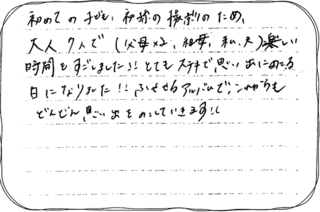 初めての子ども、初節の撮影のため、
大人7人で(父母×2、祖母、私、夫)楽しい
時間をすごしました!!とてもステキで思い出にのこる
日になりました!!ふせるアルバムで、これからも
どんどん思い出をのこしていきます!!